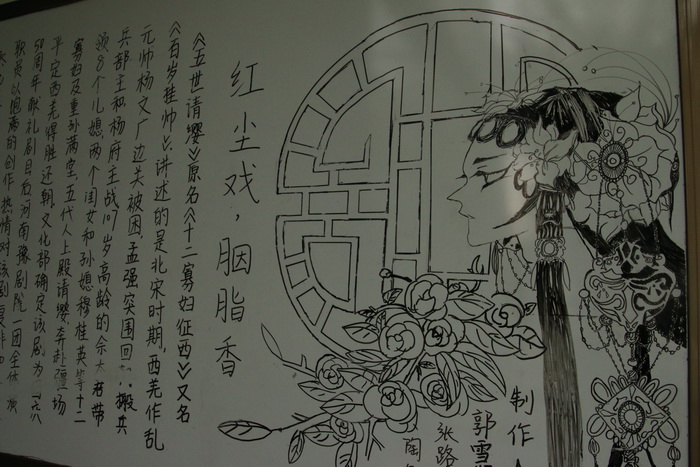 红尘戏，胭脂香
《五世请缨》原名《十二寡妇征西》又名
《百岁挂帅》讲述的是北宋时期，西羌作乱
元帅杨文广边关被困孟强突围回搬兵
兵部王和杨府主战107岁高龄的佘太君带
领8个儿媳两个闺女和孙媳穆桂英等十二
寡妇及重孙满堂，五代人上殿请缨奔赴疆场
平定西羌得胜还朝文化部确定该剧为
50周年献礼剧目后河南豫剧院一团全体
职员以饱满的创作热情对该剧
制作人
郭雪
张路
陶